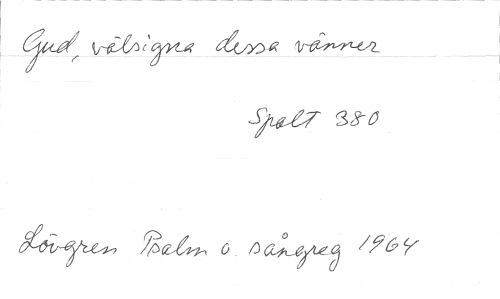 Gud, välsigna dessa vänner
Spalt 380
Lövgren Psalm o. sångreg 1964